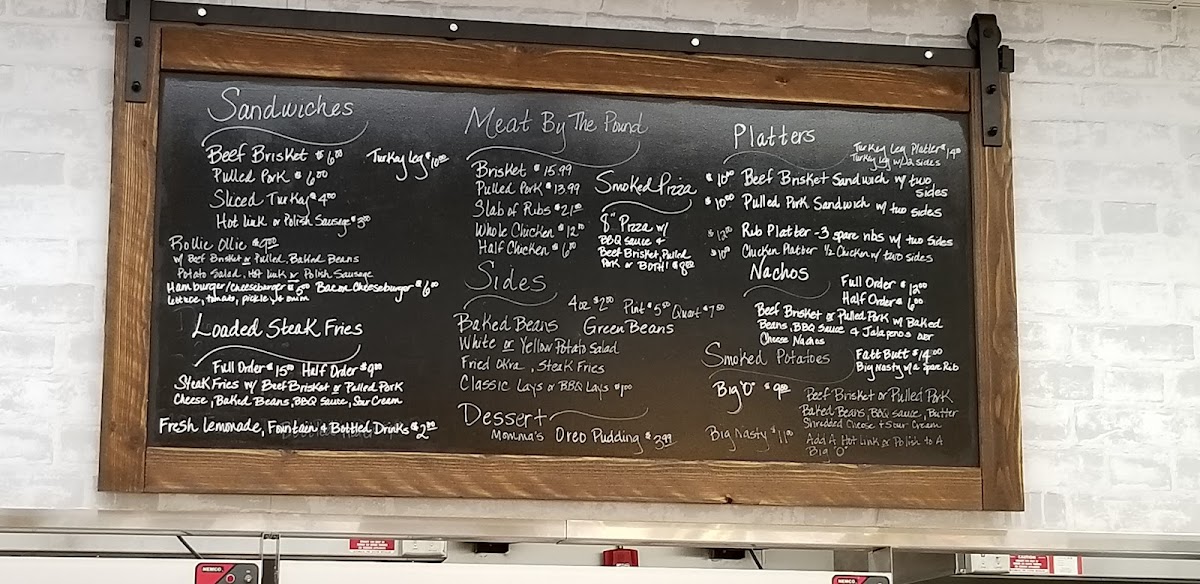 Sandwiches
Beef Brisket $6.00
Turkey Leg $10.00
Pulled Pork $6.00
Sliced Turkey $4.00
Hot Link or Polish Sausage $3.00
Rollie Ollie $9.00
w/ Beef Brisket or Pulled, Baked Beans
Potato Salad, Hot Link or Polish Sausage
Hamburger/Cheeseburger $5.00 Bacon Cheeseburger $6.00
lettuce, tomato, pickle, onion
Loaded Steak Fries
Full Order $15.00 Half Order $9.00
Steak Fries w/ Beef Brisket or Pulled Pork
Cheese, Baked Beans, BBQ Sauce, Sour Cream
Fresh Lemonade, Fountain & Bottled Drinks $2.00
Meat By The Pound
Brisket $15.99
Pulled Pork $13.99
Slab of Ribs $21.00
Whole Chicken $12.00
Half Chicken $6.00
Smoked Pizza
8" Pizza w/
BBQ Sauce &
Beef Brisket, Pulled
Pork or BOTH! $8.00
Sides
4oz $2.00 Pint $5.50 Quart $7.50
Baked Beans Green Beans
White or Yellow Potato Salad
Fried Okra, Steak Fries
Classic Lays or BBQ Lays $1.00
Dessert
Momma's Oreo Pudding $3.99
Platters
Turkey Leg Platter $14.00
Turkey Leg w/ 2 sides
$10.00 Beef Brisket Sandwich w/ two
sides
$10.00 Pulled Pork Sandwich w/ two sides
$12.00 Rib Platter - 3 spare ribs w/ two sides
$10.00 Chicken Platter 1/2 Chicken w/ two sides
Nachos
Full Order $12.00
Half Order $6.00
Beef Brisket or Pulled Pork w/ Baked
Beans, BBQ Sauce & Jalapenos over
Cheese Nachos
Smoked Potatoes
Fatt Butt $14.00
Big Nasty w/ a Spare Rib
Big "O" $9.00
Beef Brisket or Pulled Pork
Baked Beans, BBQ Sauce, Butter
Shredded Cheese & Sour Cream
Big Nasty $11.00
Add A Hot Link or Polish to A
Big "O"
NEMCO
NEMCO
CAUTION